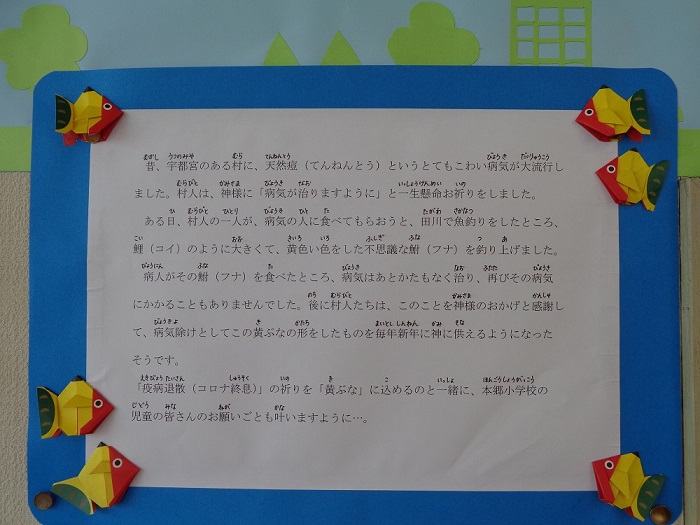 昔、宇都宮のある村に、天然痘（てんねんとう）というとてもこわい病気が大流行し
ました。村人は、神様に「病気が治りますように」と一生懸命お祈りをしました。
ある日、村人の一人が、病気の人に食べてもらおうと、田川で魚釣りをしたところ、
鯉（コイ）のように大きくて、黄色い色をした不思議な鮒（フナ）を釣り上げました。
病人がその鮒（フナ）を食べたところ、病気はあとかたもなく治り、再びその病気
にかかることもありませんでした。後に村人たちは、このことを神様のおかげと感謝し
て、病気除けとしてこの黄ぶなの形をしたものを毎年新年に神に供えるようになった
そうです。
「疫病退散（コロナ終息）」の祈りを「黄ぶな」に込めるのと一緒に、本郷小学校の
児童の皆さんのお願いごとも叶いますように…。